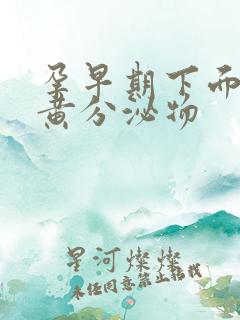 孕早期下面
黄分泌物
星河燦燦
未经同意禁止转载